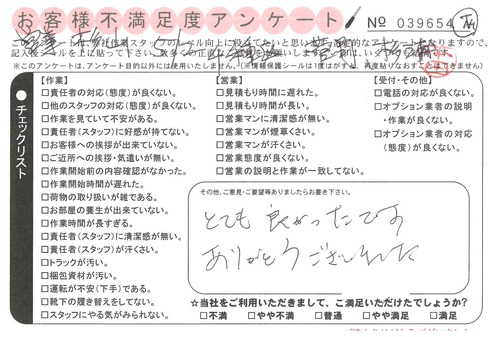 お客様不満足度アンケート
No 039654
※このアンケートは、アンケート目的以外には使用いたしません。
チェックリスト
【作業】
□責任者の対応(態度)が良くない。
□他のスタッフの対応(態度)が良くない。
□作業を見ていて不安がある。
□責任者(スタッフ)に好感が持てない。
□お客様への挨拶が出来ていない。
□ご近所への挨拶・気遣いが無い。
□作業開始前の内容確認がなかった。
□作業開始時間が遅れた。
□荷物の取り扱いが雑である。
□お部屋の養生が出来ていない。
□作業時間が長すぎる。
□責任者(スタッフ)に清潔感が無い。
□責任者(スタッフ)が汗くさい。
□トラックが汚い。
□梱包資材が汚い。
□運転が不安(下手)である。
□靴下の履き替えをしてない。
□スタッフにやる気がみられない。
【営業】
□見積もり時間に遅れた。
□見積もり時間が長い。
□営業マンに清潔感が無い。
□営業マンが煙草くさい。
□営業マンが汗くさい。
□営業態度が良くない。
□営業の説明と作業が一致してない。
【受付・その他】
□電話の対応が良くない。
□オプション業者の説明
・作業が良くない。
□オプション業者の対応
(態度)が良くない。
その他、ご意見・ご要望等ありましたらお書き下さい。
とても良かったです
ありがとうございました
☆当社をご利用いただきまして、ご満足いただけたでしょうか?
□不満 □やや不満 □普通 □やや満足 □満足